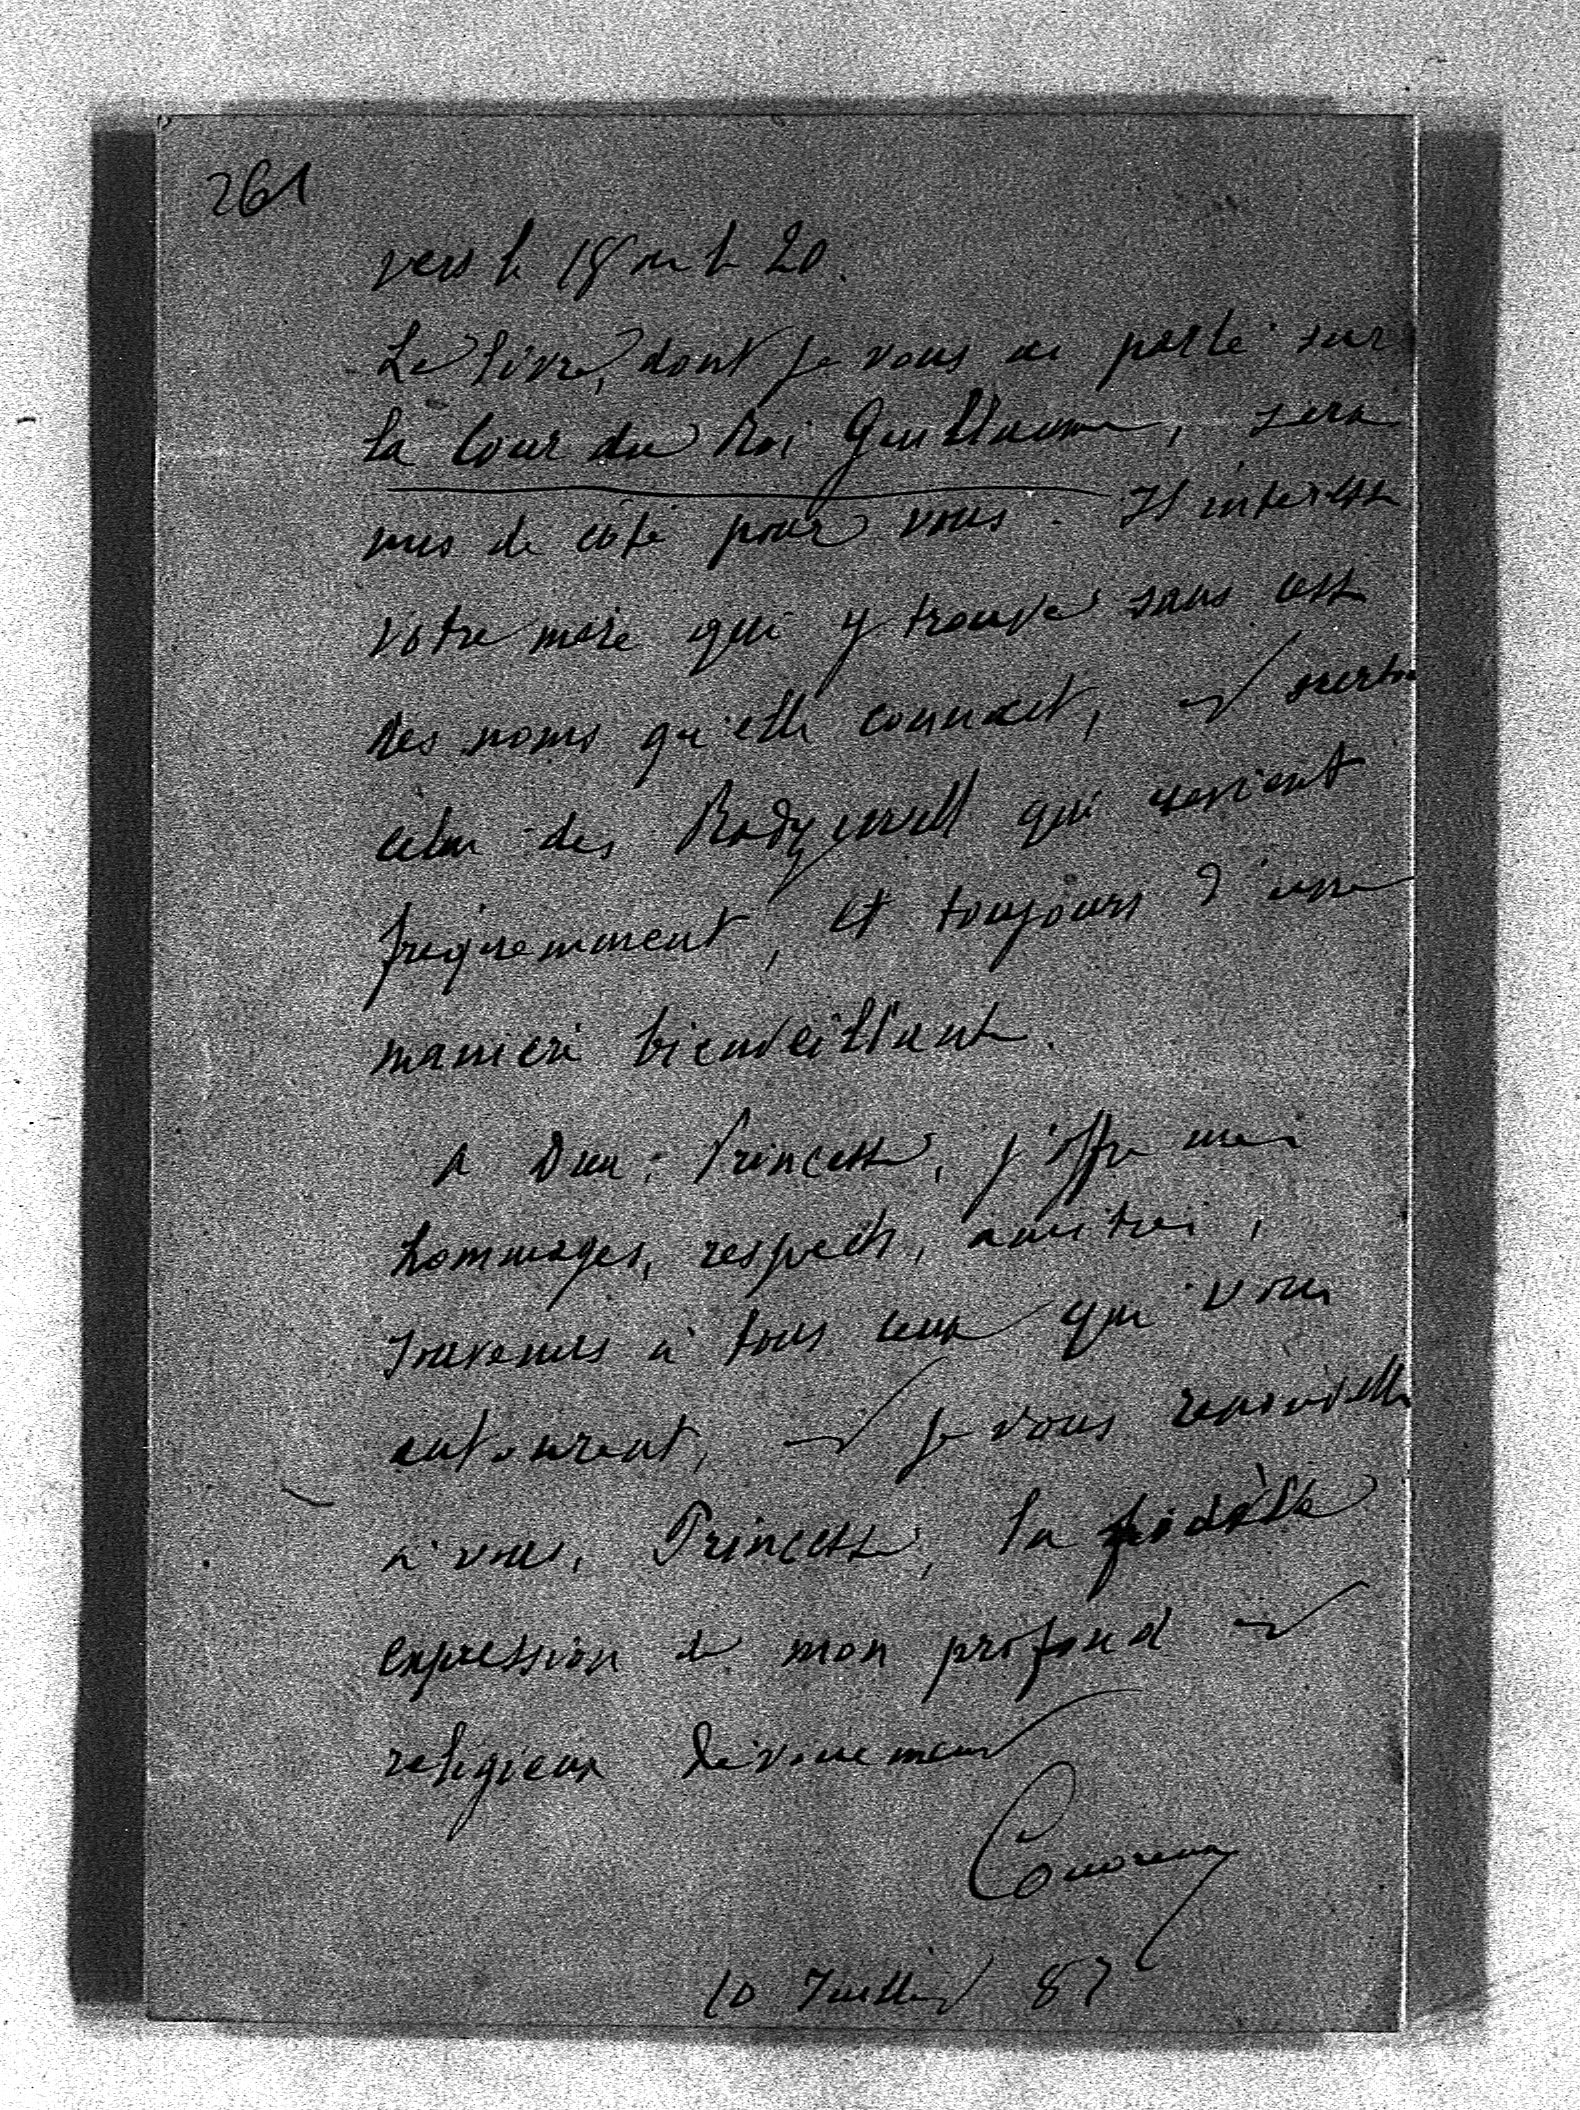 261
vers le 18 ou le 20.
Le livre, dont je vous ai parlé sur
la Cour du Roi Guillaume, sera
mis de côté pour vous. Il intéresse
votre mère qui y trouve sans cesse
des noms qu'elle connait, et surtout
celui des Radziwill qui revient
fréquemment, et toujours d'une
manière bienveillante.
A Dieu, Princesse, j'offre mes
hommages, respects, amitiés,
souvenirs à tous ceux qui vous
entourent, et je vous renouvelle
à vous, Princesse, la fidèle
expression de mon profond et
religieux dévouement
10 Juillet 87